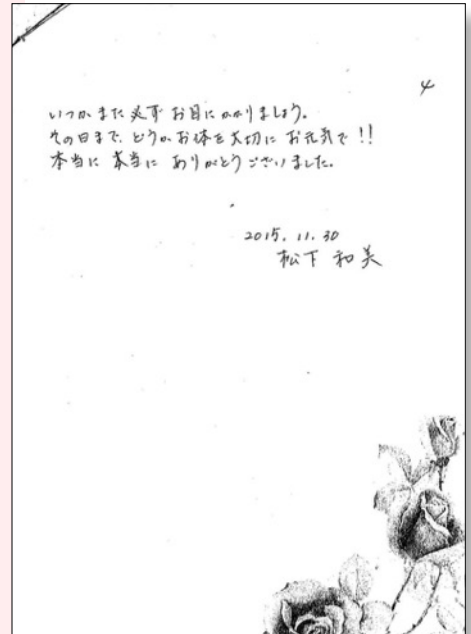 4
いつかまた必ずお目にかかりましょう。
その日まで、どうかお体を大切にお元気で!!
本当に 本当に ありがとうございました。
2015. 11. 30
松下 和美